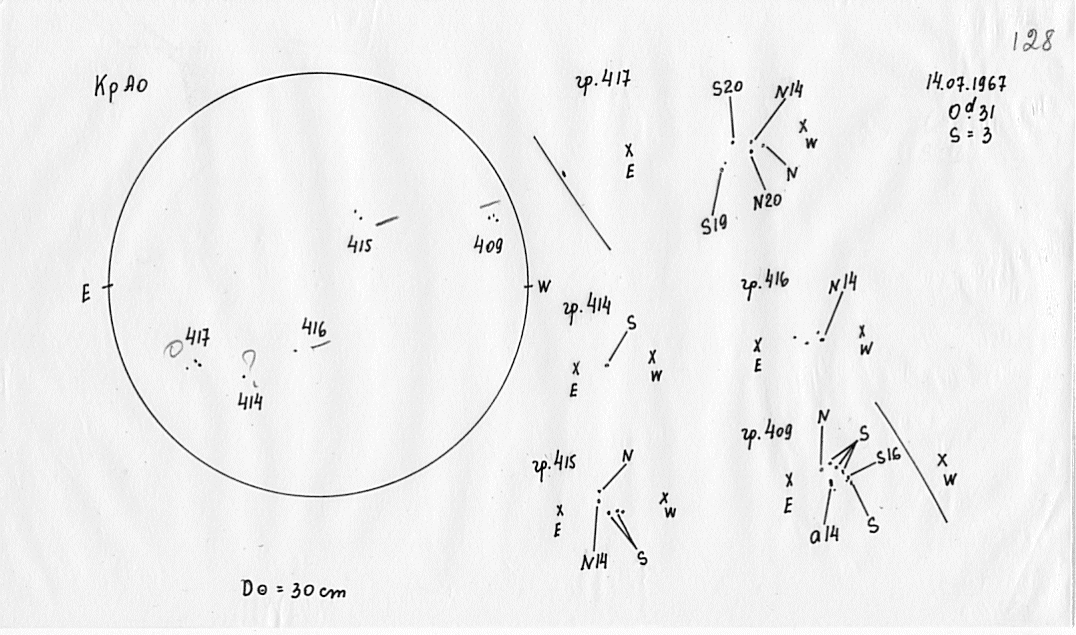 128
КрАО
14.07.1967
0ᵈ.31
S = 3
415
409
E
W
417
416
414
D⊙ = 30 cm
гр.417
X
E
S20
N14
X
W
N
N20
S19
гр.414
S
X
E
X
W
гр.416
N14
X
E
X
W
гр.415
N
X
E
X
W
N14
S
гр.409
N
S
S16
X
E
X
W
a14
S